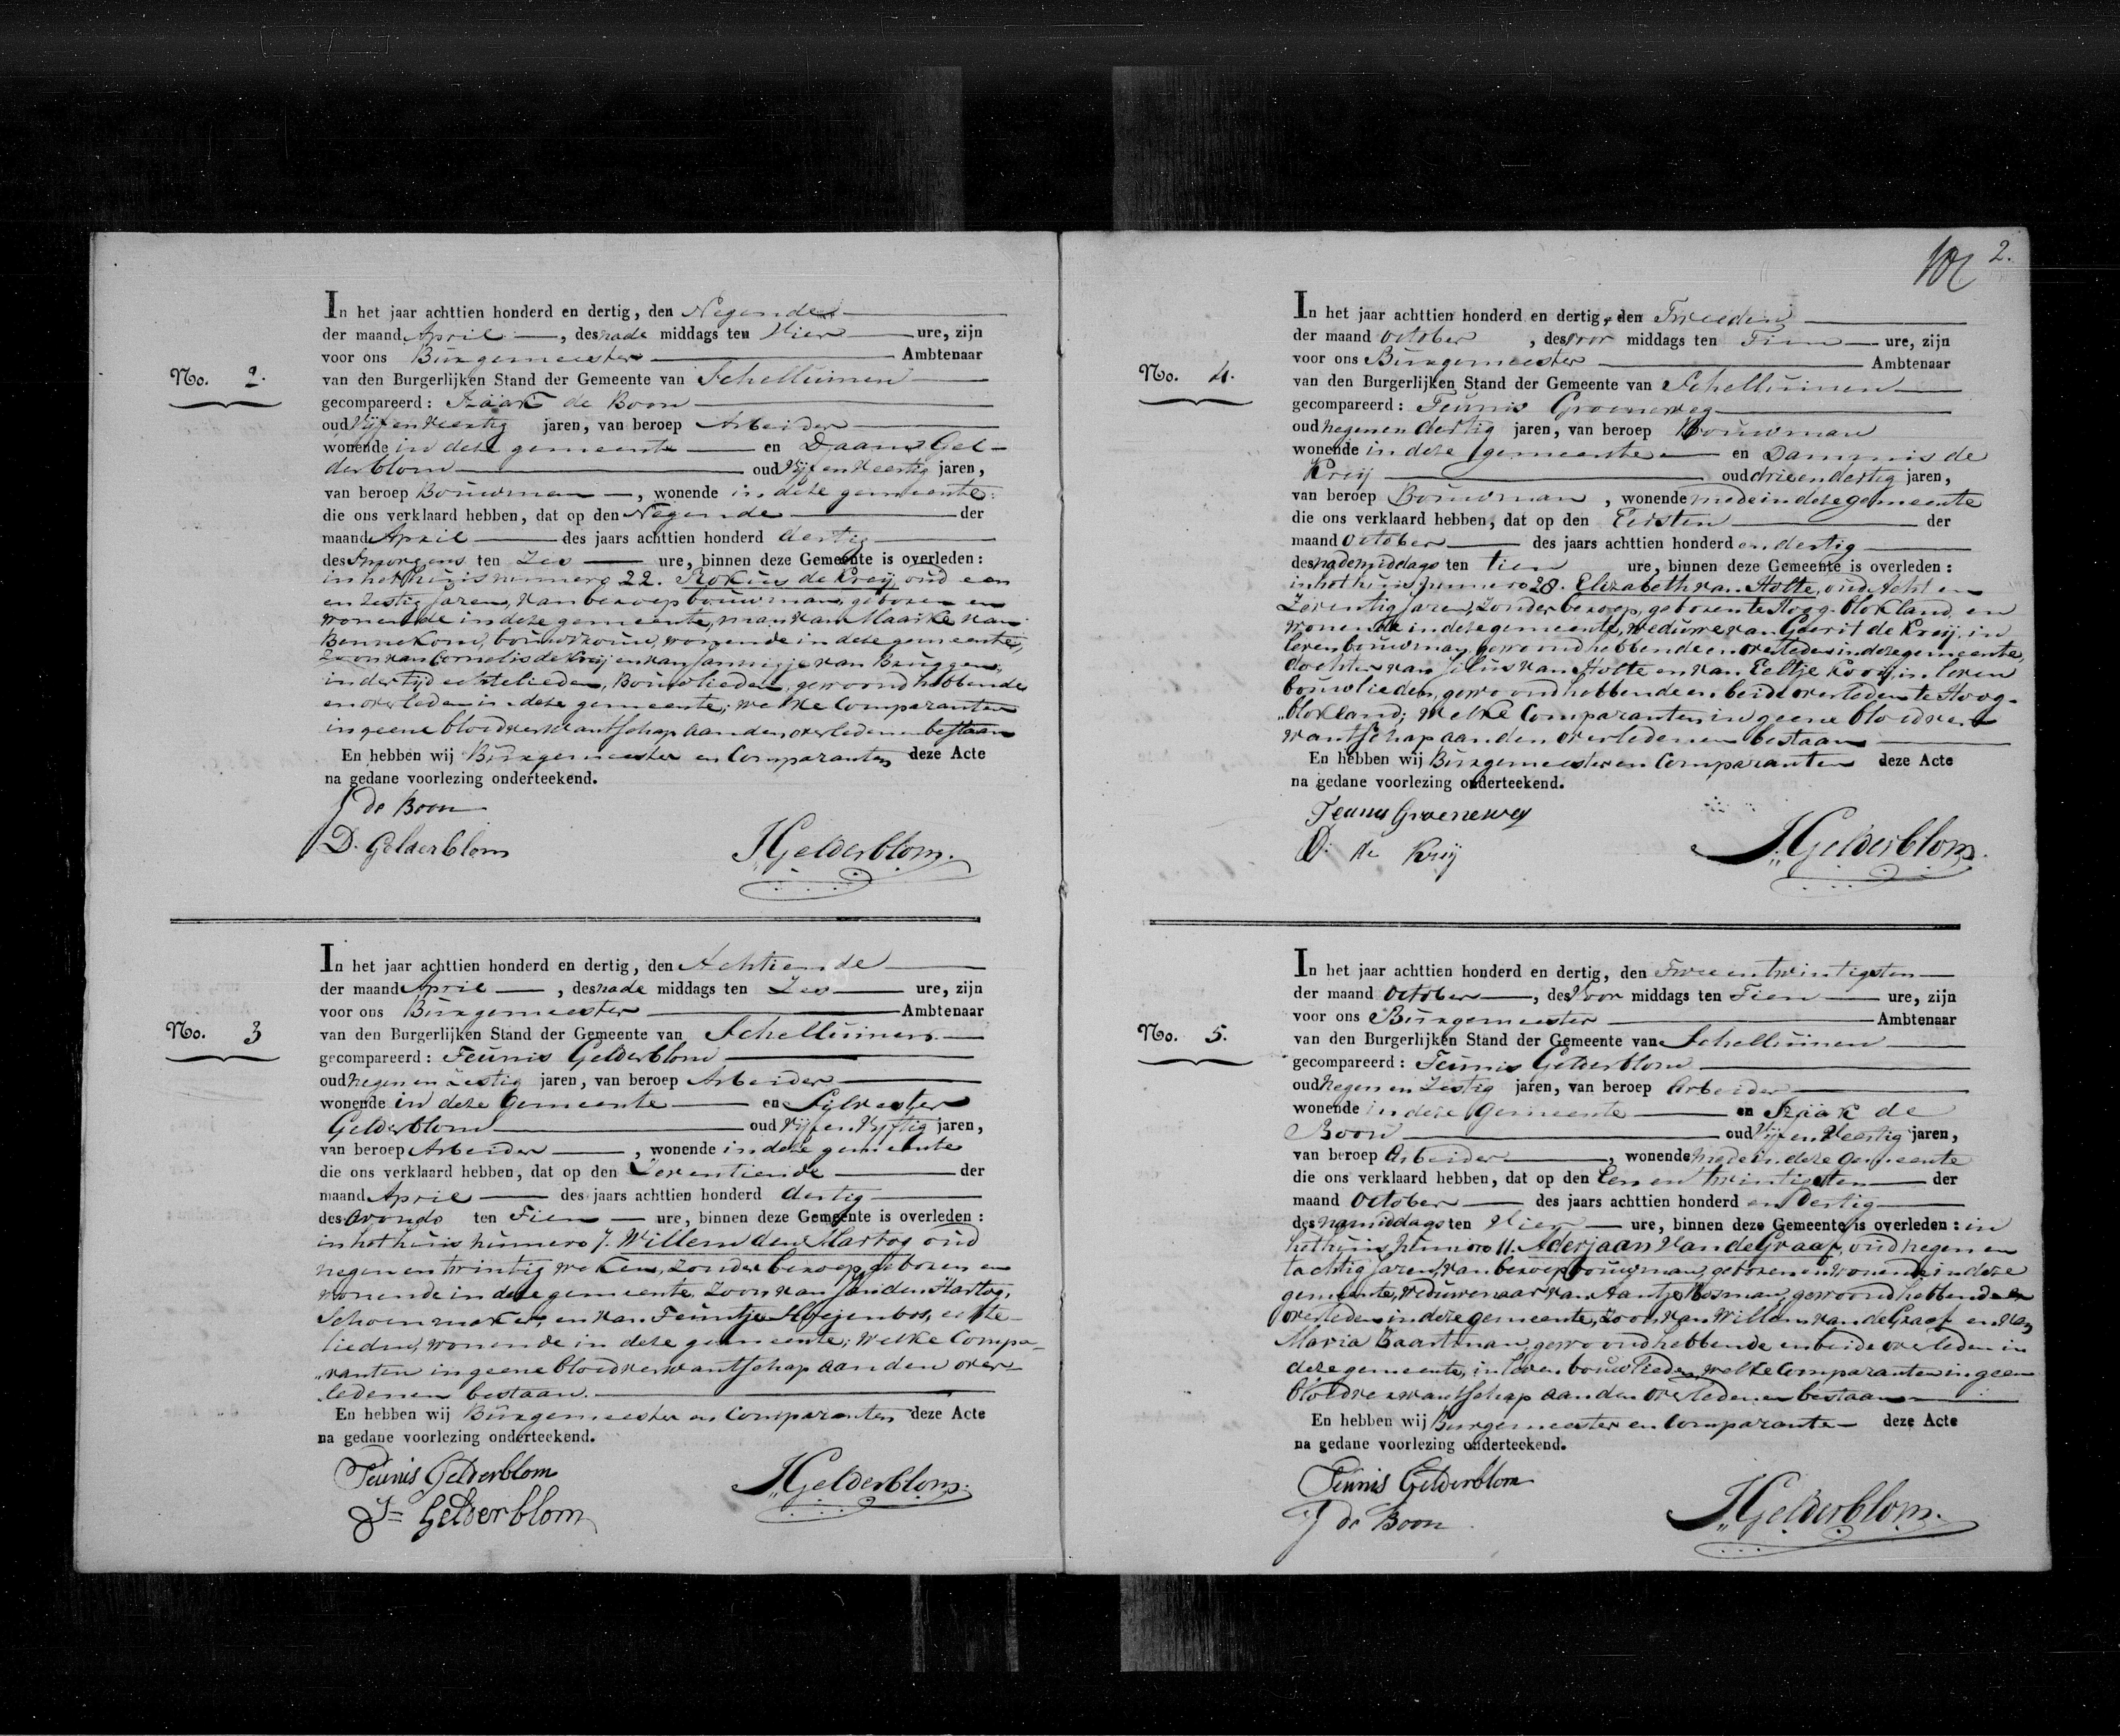 No. 2.
In het jaar achttien honderd en dertig, den Negende
der maand April, des nade middags ten Vier ure, zijn
voor ons Burgemeester Ambtenaar
van den Burgerlijken Stand der Gemeente van Schelluinen
gecompareerd: Izäak de Boon
oud Vijf en Veertig jaren, van beroep Arbeider
wonende in deze gemeente en Daam Gel-
derblom oud Vijf en Veertig jaren,
van beroep Bouwman, wonende in deze gemeente:
die ons verklaard hebben, dat op den Negende der
maand April des jaars achttien honderd dertig
des smorgens ten Zes ure, binnen deze Gemeente is overleden:
in het huis nummero 22. Rokus de Kreij oud een
en Zestig jaren, van beroep bouwman, geboren en
wonende in deze gemeente, man van Maaike van
Bennekom, bouwvrouw, wonende in deze gemeente,
Zoon van Cornelis de Kreij en van Jannigje van Bruggen,
in der tijd echtelieden, Bouwlieden, gewoond hebbende
en overleden in deze gemeente; welke Comparanten
in geene bloedverwantschap aan den overledenen bestaan
En hebben wij Burgemeester en Comparanten deze Acte
na gedane voorlezing onderteekend.
J de Boon
D. Gelderblom
J. Gelderblom.
No. 3
In het jaar achttien honderd en dertig, den Achtiende
der maand April, des nade middags ten Zes ure, zijn
voor ons Burgemeester Ambtenaar
van den Burgerlijken Stand der Gemeente van Schelluinen
gecompareerd: Teunis Gelderblom
oud negen en Zestig jaren, van beroep Arbeider
wonende in deze Gemeente en Silvester
Gelderblom oud Vijf en Vijftig jaren,
van beroep Arbeider, wonende in deze gemeente
die ons verklaard hebben, dat op den Zeventiende der
maand April des jaars achttien honderd dertig
des avonds ten Tien ure, binnen deze Gemeente is overleden:
in het huis nummero 7. Willem den Hartog oud
negen en twintig weken, zonder beroep, geboren en
wonende in deze gemeente, Zoon van Jan den Hartog,
Schoenmaker, en van Teuntje Hoejenbos, echte-
lieden, wonende in deze gemeente; welke Compa-
„ranten in geene bloedverwantschap aan den over-
ledenen bestaan.
En hebben wij Burgemeester en Comparanten deze Acte
na gedane voorlezing onderteekend.
Teunis Gelderblom
S= Gelderblom
J. Gelderblom.
102 2.
No. 4.
In het jaar achttien honderd en dertig, den Tweeden
der maand October, des voor middags ten Tien ure, zijn
voor ons Burgemeester Ambtenaar
van den Burgerlijken Stand der Gemeente van Schelluinen
gecompareerd: Teunis Groeneweg
oud negen en dertig jaren, van beroep Bouwman
wonende in deze gemeente en Dammis de
Kreij oud drie en dertig jaren,
van beroep Bouwman, wonende mede in deze gemeente
die ons verklaard hebben, dat op den Eersten der
maand October des jaars achttien honderd en dertig
des nademiddags ten tien ure, binnen deze Gemeente is overleden:
in het huis nummero 28. Elizabeth van Holte, oud Acht en
Zeventig Jaren, zonder beroep, geboren te Hoog-blokland, en
wonende in deze gemeente, weduwe van Gerrit de Kreij, in
leven bouwman, gewoond hebbende en overleden in deze gemeente,
dochter van Jilus van Holte en van Eeltje Kooij, in leven
bouwlieden, gewoond hebbende en beide overleden te Hoog-
„blokland; welke Comparanten in geene bloedver-
wantschap aan den overledenen bestaan
En hebben wij Burgemeester en Comparanten deze Acte
na gedane voorlezing onderteekend.
Teunis Groeneweg
D: de Kreij
J. Gelderblom.
No. 5.
In het jaar achttien honderd en dertig, den Twee en twintigsten
der maand October, des Voor middags ten Tien ure, zijn
voor ons Burgemeester Ambtenaar
van den Burgerlijken Stand der Gemeente van Schelluinen
gecompareerd: Teunis Gelderblom
oud negen en Zestig jaren, van beroep Arbeider
wonende in deze Gemeente en Izäak de
Boon oud Vijf en Veertig jaren,
van beroep Arbeider, wonende mede in deze Gemeente
die ons verklaard hebben, dat op den Een en twintigsten der
maand October des jaars achttien honderd en Dertig
des namiddags ten Vier ure, binnen deze Gemeente is overleden: in
het huis nummero 11. Aderjaan Van de Graaf, oud negen en
tachtig jaren, van beroep bouwman, geboren en wonende in deze
gemeente, weduwenaar van Aantje Bosman, gewoond hebbende en
overleden in deze gemeente, zoon van Willem van de Graaf en van
Maria Baartman, gewoond hebbende en beide overleden in
deze gemeente, in leven bouwlieden, welke Comparanten in geen
bloedverwantschap aan den overledenen bestaan
En hebben wij Burgemeester en Comparante deze Acte
na gedane voorlezing onderteekend.
Teunis Gelderblom
J de Boon
J. Gelderblom.